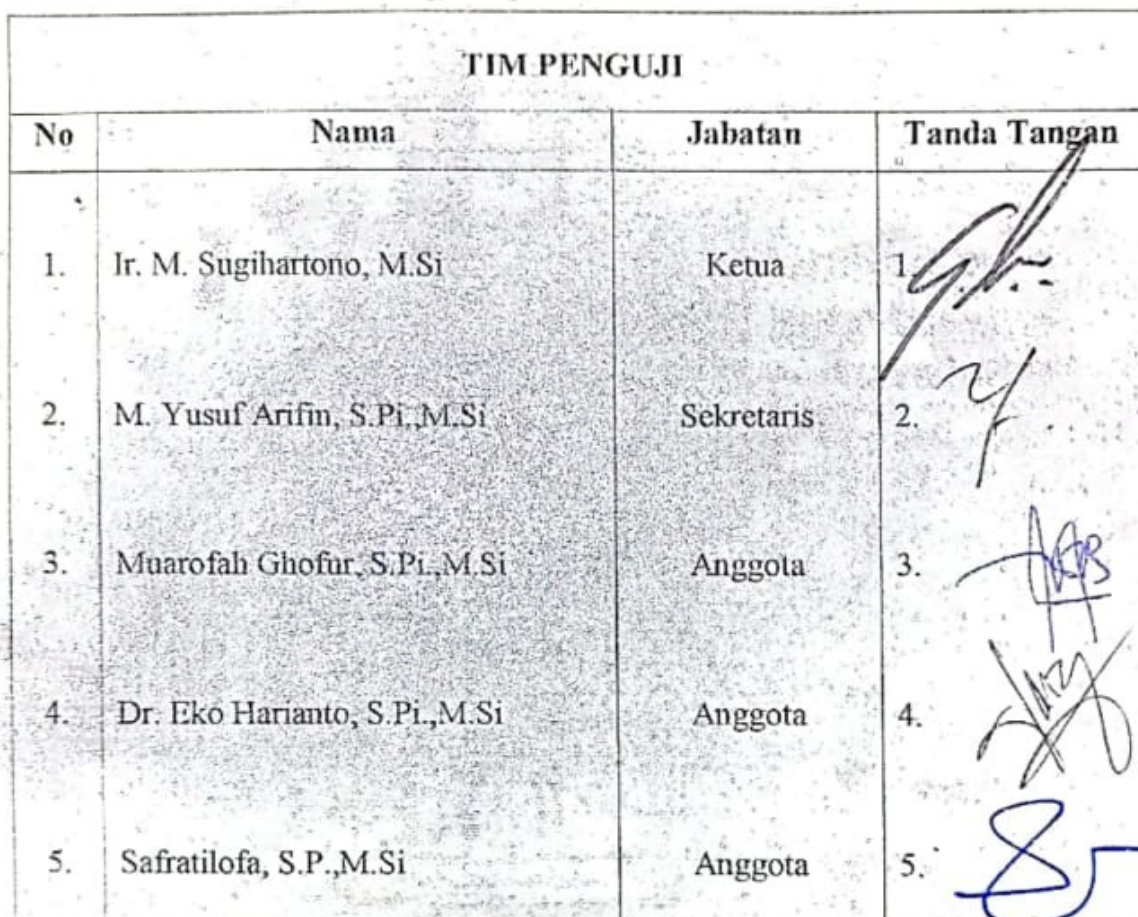 TIM PENGUJI
No Nama Jabatan Tanda Tangan
1. Ir. M. Sugihartono, M.Si Ketua 1.
2. M. Yusuf Arifin, S.Pi.,M.Si Sekretaris 2.
3. Muarofah Ghofur, S.Pi.,M.Si Anggota 3.
4. Dr. Eko Harianto, S.Pi.,M.Si Anggota 4.
5. Safratilofa, S.P.,M.Si Anggota 5.